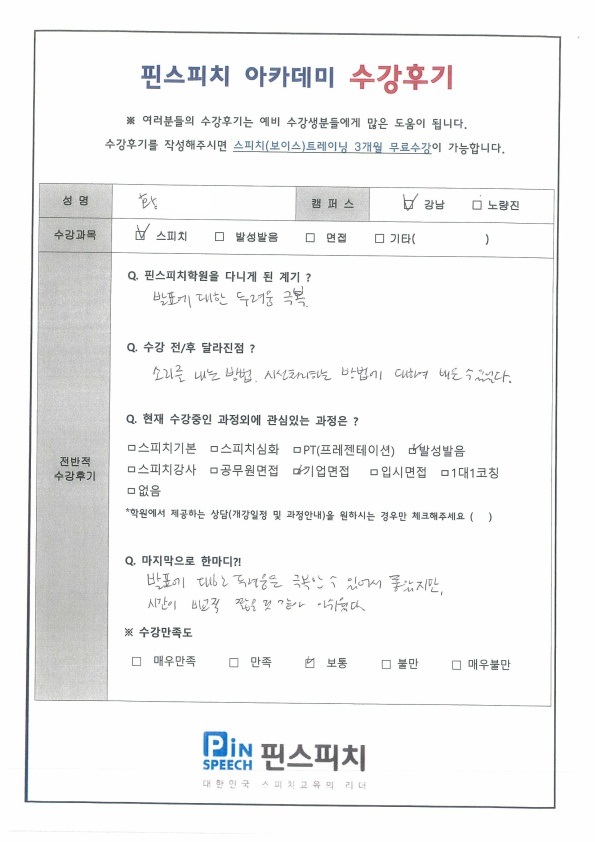 핀스피치 아카데미 수강후기
※ 여러분들의 수강후기는 예비 수강생분들에게 많은 도움이 됩니다.
수강후기를 작성해주시면 스피치(보이스)트레이닝 3개월 무료수강이 가능합니다.
성 명 캠 퍼 스 ☑ 강남 □ 노량진
수강과목 ☑ 스피치 □ 발성발음 □ 면접 □ 기타( )
전반적
수강후기
Q. 핀스피치학원을 다니게 된 계기 ?
발표에 대한 두려움 극복.
Q. 수강 전/후 달라진점 ?
소리를 내는 방법, 시선처리하는 방법에 대하여 배울 수 있었다.
Q. 현재 수강중인 과정외에 관심있는 과정은 ?
□스피치기본 □스피치심화 □PT(프레젠테이션) ☑발성발음
□스피치강사 □공무원면접 ☑기업면접 □입시면접 □1대1코칭
□없음
*학원에서 제공하는 상담(개강일정 및 과정안내)을 원하시는 경우만 체크해주세요 ( )
Q. 마지막으로 한마디?!
발표에 대한 두려움을 극복할 수 있어서 좋았지만,
시간이 비교적 짧은 것 같아 아쉬웠다
※ 수강만족도
□ 매우만족 □ 만족 ☑ 보통 □ 불만 □ 매우불만
PiN SPEECH 핀스피치
대한민국 스피치교육의 리더